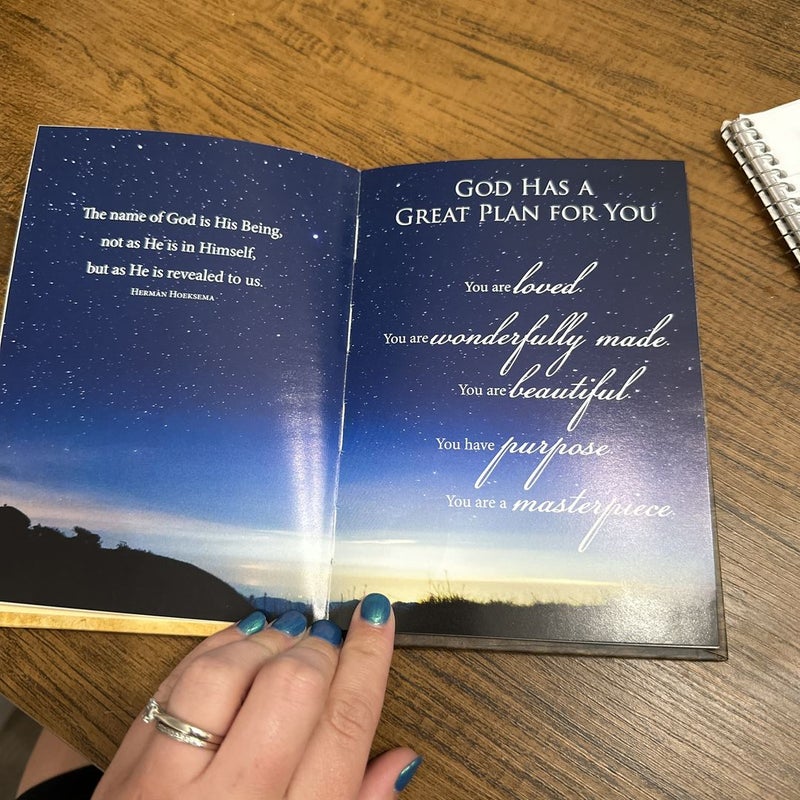 The name of God is His Being,
not as He is in Himself,
but as He is revealed to us.
Herman Hoeksema
God Has a
Great Plan for You
You are loved.
You are wonderfully made.
You are beautiful.
You have purpose.
You are a masterpiece.